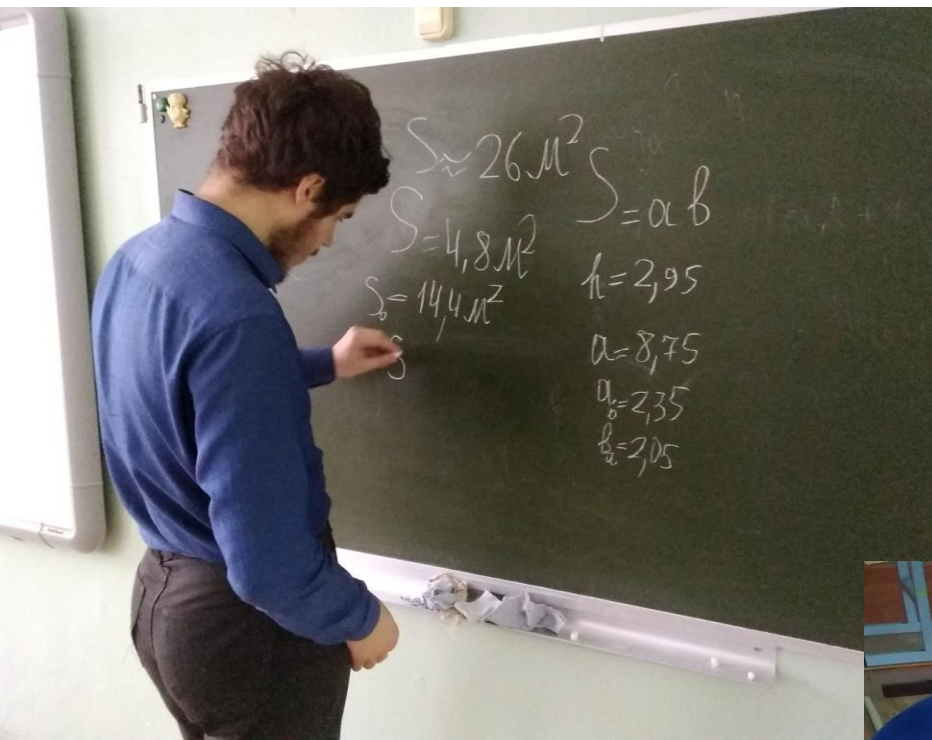 S ≈ 26 м²
S = 4,8 м²
S₀ = 14,4 м²
S
S = ab
h = 2,95
a = 8,75
a₀ = 2,35
= 2,05